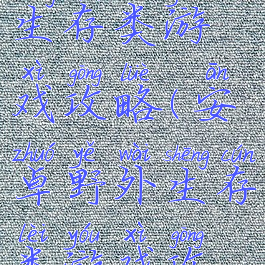 生存类游
xì gōng lüè ān
戏攻略(安
zhuó yě wài shēng cún
卓野外生存
lèi yóu xì gōng
类游戏攻